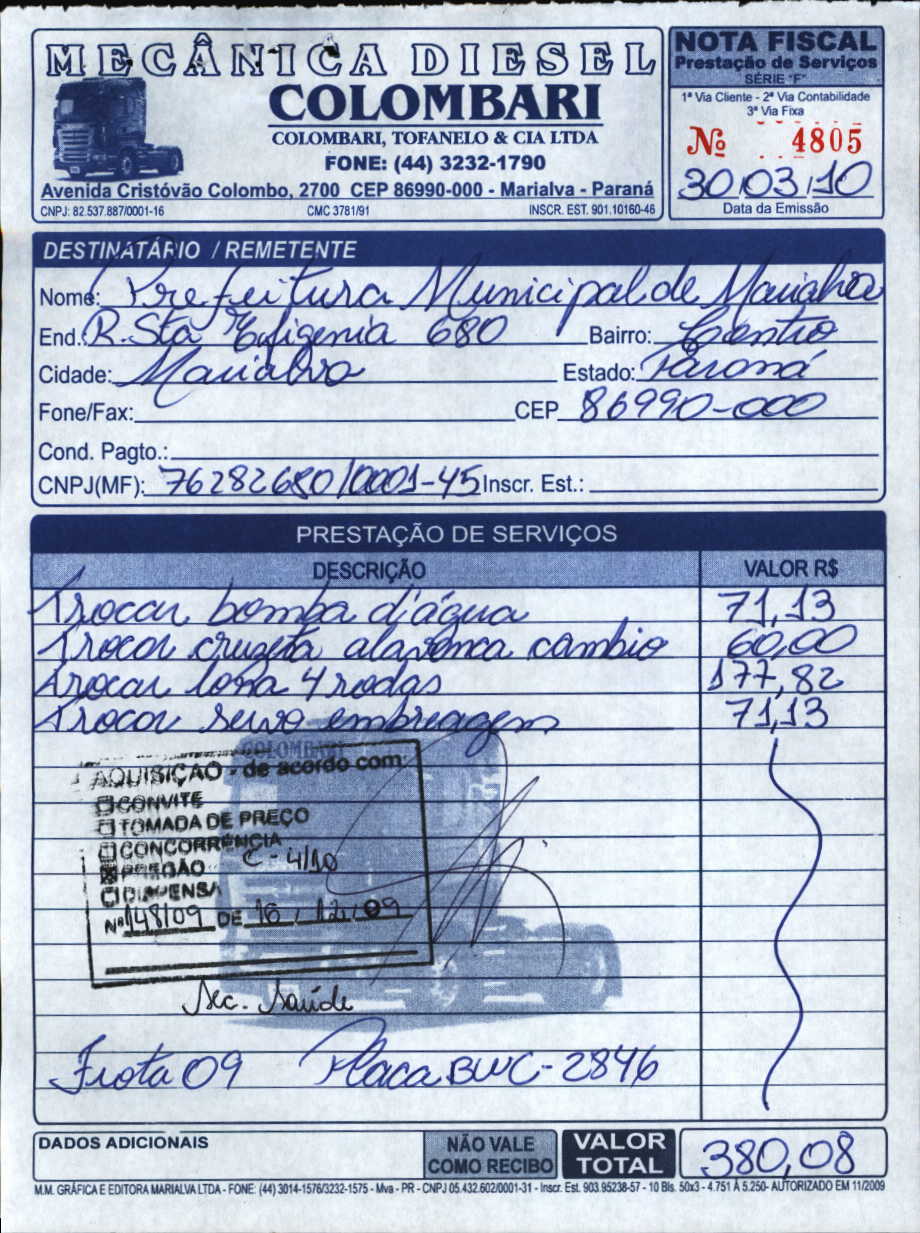 MECÂNICA DIESEL
COLOMBARI
COLOMBARI, TOFANELO & CIA LTDA
FONE: (44) 3232-1790
Avenida Cristóvão Colombo, 2700 CEP 86990-000 - Marialva - Paraná
CNPJ: 82.537.887/0001-16 CMC 3781/91 INSCR. EST. 901.10160-46
NOTA FISCAL
Prestação de Serviços
SÉRIE "F"
1ª Via Cliente - 2ª Via Contabilidade
3ª Via Fixa
Nº 4805
30/03/10
Data da Emissão
DESTINATÁRIO / REMETENTE
Nome: Prefeitura Municipal de Marialva
End.: R. Sta Efigenia 680 Bairro: Centro
Cidade: Marialva Estado: Paraná
Fone/Fax: CEP 86990-000
Cond. Pagto.:
CNPJ(MF): 76282680/0001-45 Inscr. Est.:
PRESTAÇÃO DE SERVIÇOS
DESCRIÇÃO VALOR R$
Trocar bomba d'água 71,13
Trocar cruzeta alavanca cambio 60,00
Trocar lona 4 rodas 177,82
Trocar servo embreagem 71,13
COLOMBARI
AQUISIÇÃO - de acordo com:
CONVITE
TOMADA DE PREÇO
CONCORRÊNCIA
PREGÃO C-4/10
DISPENSA
Nº 148/09 DE 16/12/09
Sec. Saúde
Frota 09 Placa BWC-2846
DADOS ADICIONAIS
NÃO VALE
COMO RECIBO
VALOR
TOTAL
380,08
M.M. GRÁFICA E EDITORA MARIALVA LTDA - FONE: (44) 3014-1576/3232-1575 - Mva - PR - CNPJ 05.432.602/0001-31 - Inscr. Est. 903.95238-57 - 10 Bls. 50x3 - 4.751 À 5.250- AUTORIZADO EM 11/2009